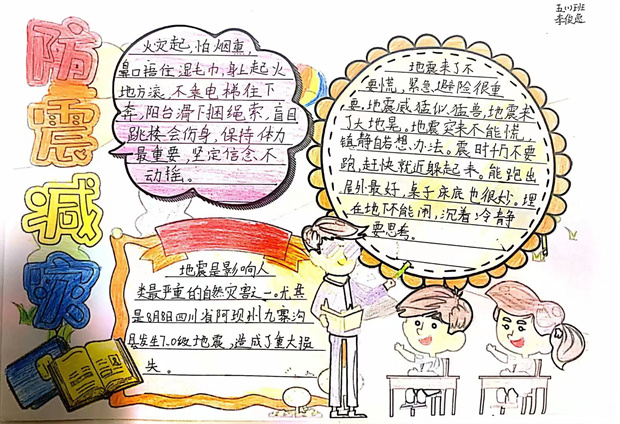 五(1)班
李俊逸
防震减灾
火灾起,怕烟熏,
鼻口捂住湿毛巾,身上起火
地方滚,不乘电梯往下
奔,阳台滑下捆绳索,盲目
跳楼会伤身,保持体力
最重要,坚定信念不
动摇。
地震来了不
要慌,紧急避险很重
要,地震威猛似猛兽,地震来
了大地晃。地震突来不能慌,
镇静自若想办法。震时千万不要
跑,赶快就近躲起来。能跑出
屋外最好,桌子床底也很妙。埋
在地下不能闹,沉着冷静
要思考。
地震是影响人
类最严重的自然灾害之一。尤其
是8月8日四川省阿坝州九寨沟
县发生7.0级地震,造成了重大损
失。